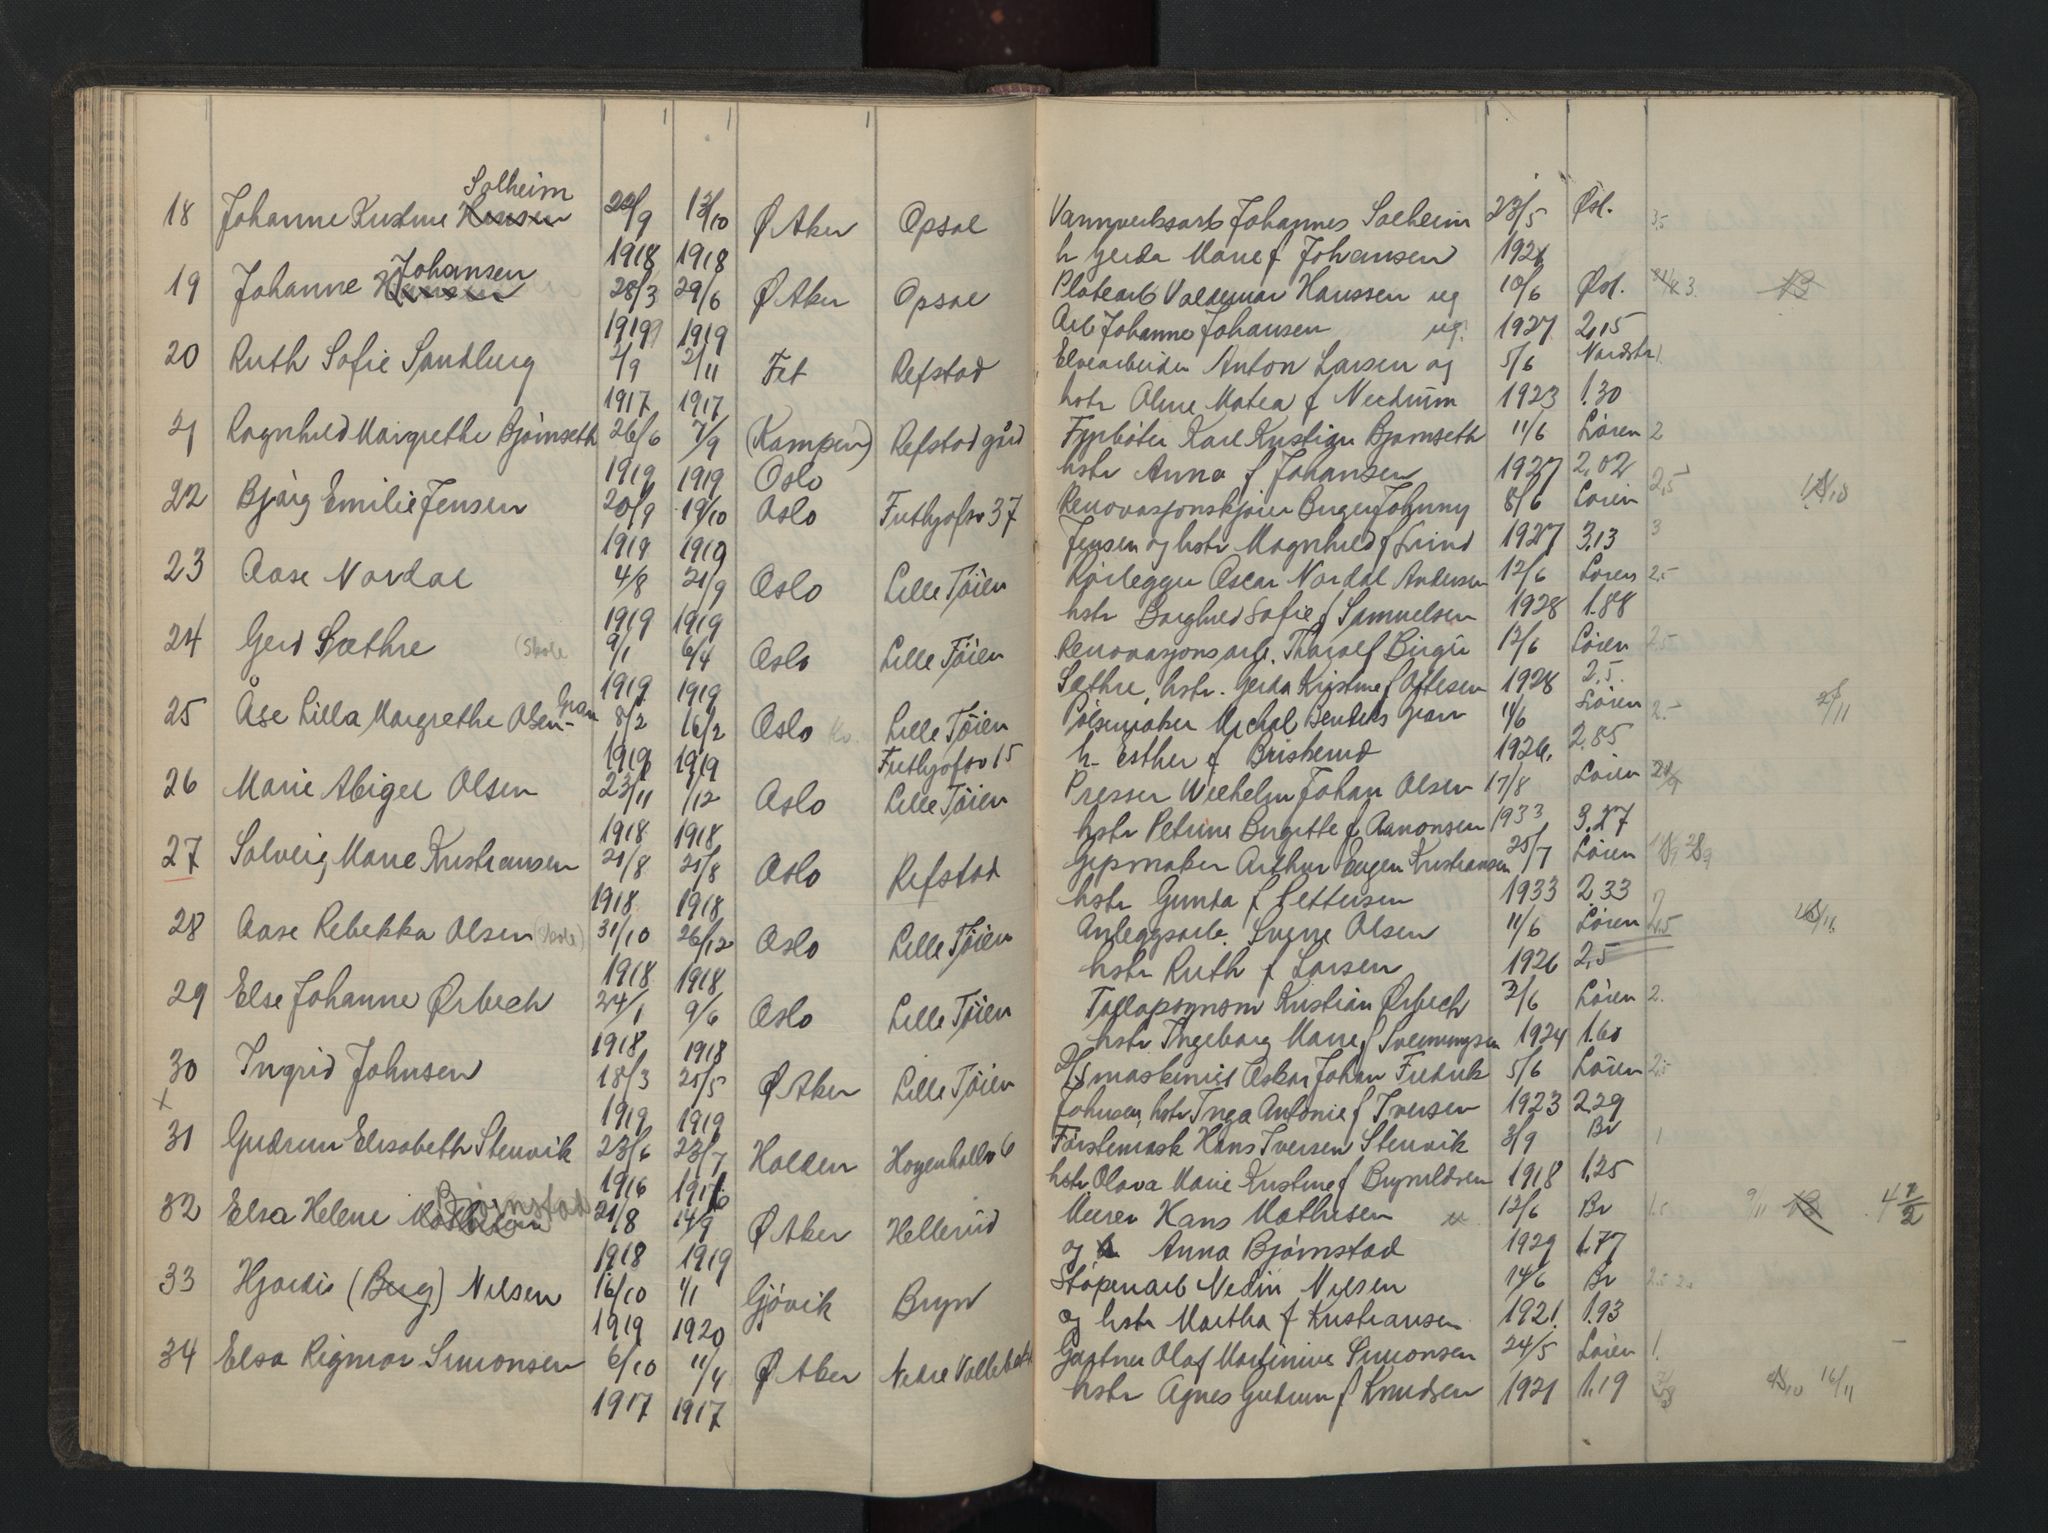 Solheim
18 Johanne Kristine Hansen 22/9 13/10 Ø Aker Opsal Vannverksarb Johannes Solheim 23/5 Øst. 3,5
1918 1918 h Gerda Marie f Johansen 1928
Johansen
19 Johanne Hansen 28/3 29/6 Ø Aker Opsal Platearb Valdemar Hanssen ug 10/6 Øst. 3. 13
1919 1919 Arb Johanne Johansen ug. 1927 2,15
20 Ruth Sofie Sandberg 2/9 2/11 Fet Refstad Elvearbeider Anton Larsen og 5/6 Nordstr 1.
1917 1917 hstr Oline Matea f Nerdrum 1923 1.30
21 Ragnhild Margrethe Bjørnseth 26/6 7/9 (Kampen) Refstad gård Fyrbøter Karl Kristian Bjørnseth 11/6 Løren 2
1919 1919 Oslo hstr Anna f Johansen 1927 2,02
22 Bjørg Emilie Jensen 20/9 19/10 Oslo Frithjofsv 37 Renovasjonskjører Birger Johnny 8/6 Løren 2,5
1919 1919 Jensen og hstr Magnhild f Lund 1927 3,13 3
23 Aase Nordal 4/8 21/9 Oslo Lille Tøien Rørlegger Oscar Nordal Andersen 12/6 Løren 2,5
1919 1919 hstr Borghild Sofie f Samuelsen 1928 1.88
24 Gerd Sæthre (Skole 9/1 6/4 Oslo Lille Tøien Renovasjonsarb. Thoralf Birger 12/6 Løren 2,5
1919 1919 Sæthre, hstr. Gerda Kristine f Ottesen 1928 2,5.
25 Åse Lilla Margrethe Olsen- Gran 8/2 16/2 Oslo Lille Tøien Pølsemaker Michal Bendiks Gran 11/6 Løren 2,5 2/11
1919 1919 Frithjofsv 15 h. Esther f Briskerud 1926. 2.85
26 Marie Abigel Olsen 23/11 1/12 Oslo Lille Tøien Presser Wilhelm Johan Olsen 17/8 Løren
1918 1918 hstr Petrine Birgitte f Aanonsen 1933 3.27
27 Solveig Marie Kristiansen 21/8 25/8 Oslo Refstad Gipsmaker Arthur Eugen Kristiansen 25/7 Løren
1918 1918 hstr Gunda f Pettersen 1933 2.33
28 Aase Rebekka Olsen (Skole) 31/10 26/12 Oslo Lille Tøien Anleggsarb. Sverre Olsen 11/6 Løren 2,5
1918 1918 hstr Ruth f Larsen 1926 2,5
29 Else Johanne Ørbech 24/1 9/6 Oslo Lille Tøien Tollopsynsm Kristian Ørbech 2/6 Løren 2.
1918 1918 hstr Ingeborg Marie f Svenningsen 1924 1.60
30 Ingrid Johnsen 18/3 25/5 Ø Aker Lille Tøien D/S maskinist Oskar Johan Fredrik 5/6 Løren 2,5
x 1919 1919 Johnsen, hstr Inga Antonie f Iversen 1923 2.29
31 Gudrun Elisabeth Stenvik 23/6 23/7 Halden Høyenhallv 6 Førstemask Hans Iversen Stenvik 3/9 Br 1
1916 1916 hstr Olava Marie Kristine f Brynildsen 1918 1,25
Bjørnstad
32 Elsa Helene Mathisen 21/8 14/9 Ø Aker Hellerud Murer Hans Mathisen u. 12/6 Br 1.5 9/11 13 4 1/2
1918 1919 og Anna Bjørnstad 1929 1.77
33 Hjørdis (Berg) Nilsen 16/10 1/1 Gjøvik Bryn Støperiarb Nedin Nilsen 14/6 Br 2,5
1919 1920 og hstr Martha f Kristiansen 1921. 1.93
34 Elsa Rigmor Simonsen 6/10 11/4 Ø Aker Nedre Vallebekk Gartner Olaf Martinius Simonsen 24/5 Løren 1.
1917 1917 hstr Agnes Gudrun f Knudsen 1921 1,19 16/11